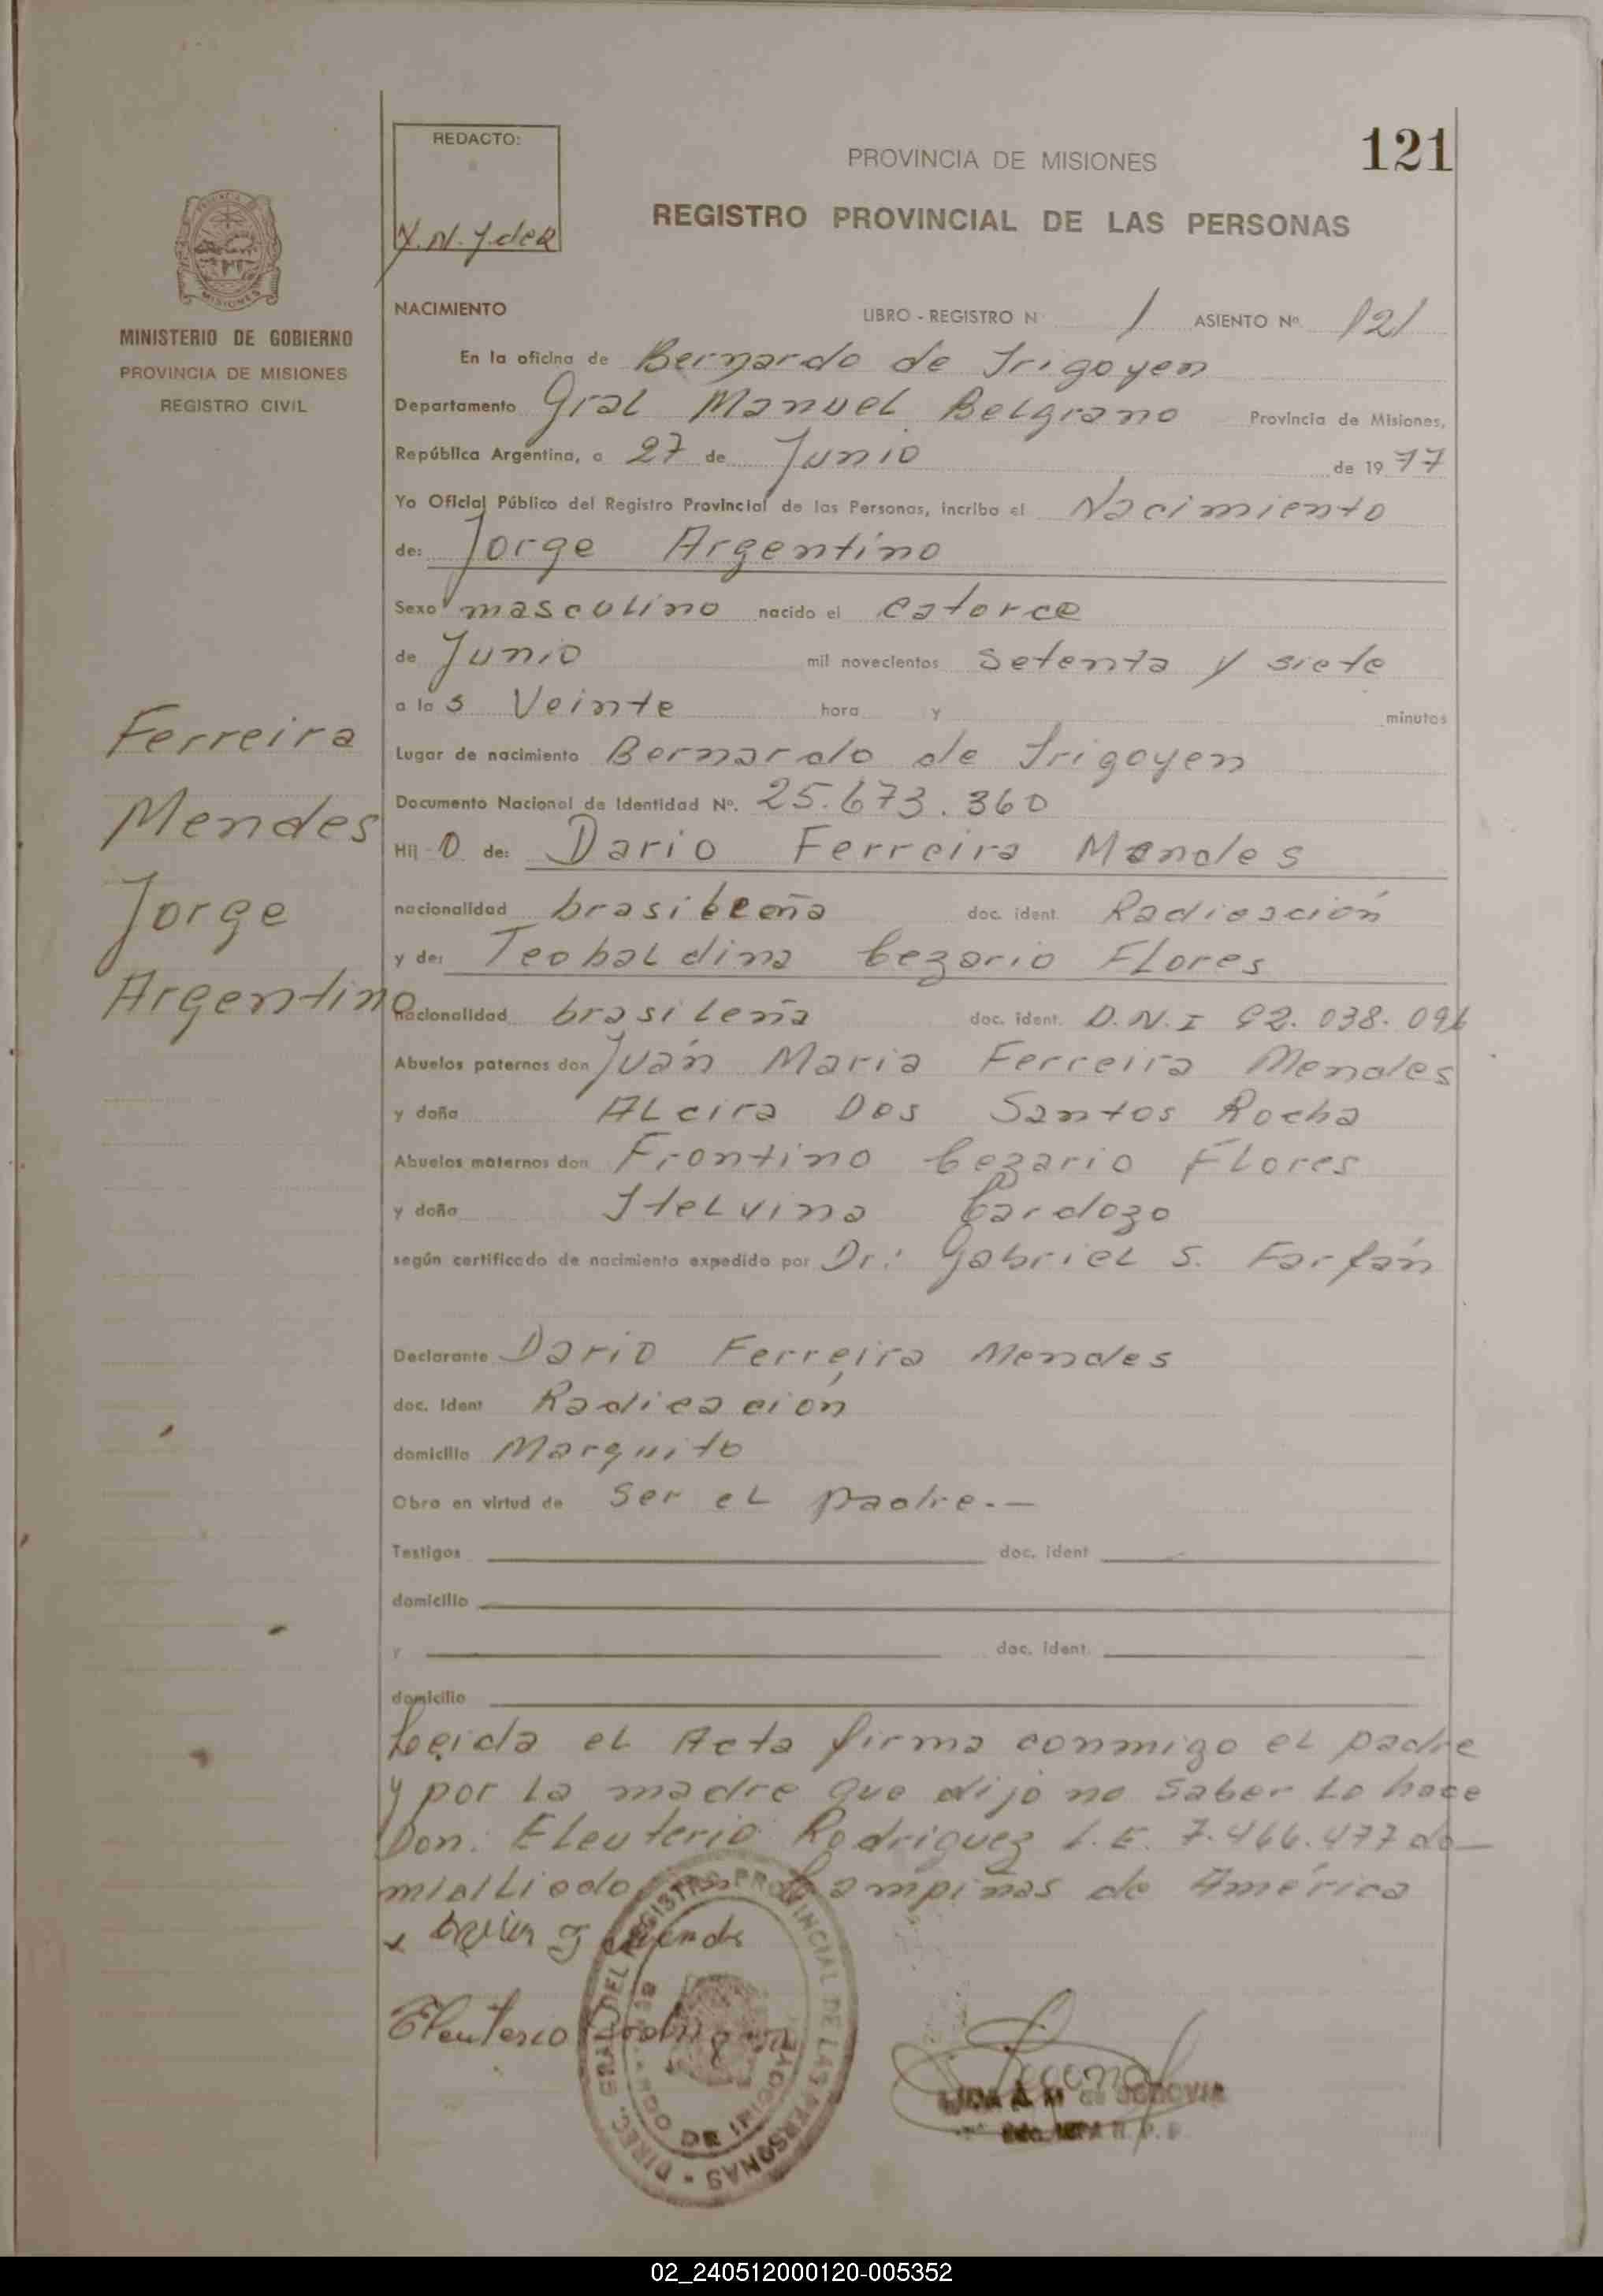 121
REDACTO:
PROVINCIA DE MISIONES
REGISTRO PROVINCIAL DE LAS PERSONAS
MINISTERIO DE GOBIERNO
PROVINCIA DE MISIONES
REGISTRO CIVIL
NACIMIENTO LIBRO - REGISTRO N 1 ASIENTO Nº 121
En la oficina de Bernardo de Irigoyen
Departamento Gral Manuel Belgrano Provincia de Misiones,
República Argentina, a 27 de Junio de 1977
Yo Oficial Público del Registro Provincial de las Personas, incribo el Nacimiento
de: Jorge Argentino
Sexo masculino nacido el catorce
de Junio mil novecientos setenta y siete
a las Veinte hora y minutos
Lugar de nacimiento Bernardo de Irigoyen
Documento Nacional de Identidad Nº. 25.673.360
Hij o de: Dario Ferreira Mendes
nacionalidad brasileña doc. ident. Radicación
y de: Teobaldina Cezario Flores
nacionalidad brasileña doc. ident. D.N.I 92.038.096
Abuelos paternos don Juán Maria Ferreira Mendes
y doña Alcira Dos Santos Rocha
Abuelos maternos don Frontino Cezario Flores
y doña Itelvina Cardozo
según certificado de nacimiento expedido por Dr: Gabriel S. Farfán
Ferreira
Mendes
Jorge
Argentino
Declarante Dario Ferreira Mendes
doc. ident Radicación
domicilio Marquito
Obra en virtud de ser el padre.-
Testigos doc. ident
domicilio
y doc. ident.
domicilio
Leida el Acta firma conmigo el padre
y por la madre que dijo no saber lo hace
Don: Eleuterio Rodriguez L.E. 7.466.477 do-
miciliado Campiñas de América
Eleuterio
DIREC. GRAL. DEL REGISTRO PROVINCIAL DE LAS PERSONAS
DE IRIGOYEN
02_240512000120-005352